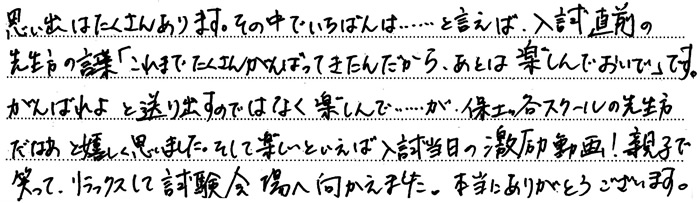 思い出はたくさんあります。その中でいちばんは……と言えば、入試直前の
先生方の言葉「これまでたくさんがんばってきたんだから、あとは楽しんでおいで」です。
がんばれよ と送り出すのではなく楽しんで……が、保土ヶ谷スクールの先生方
だなあ と嬉しく思いました。そして楽しいといえば入試当日の激励動画！親子で
笑って、リラックスして試験会場へ向かえました。本当にありがとうございます。